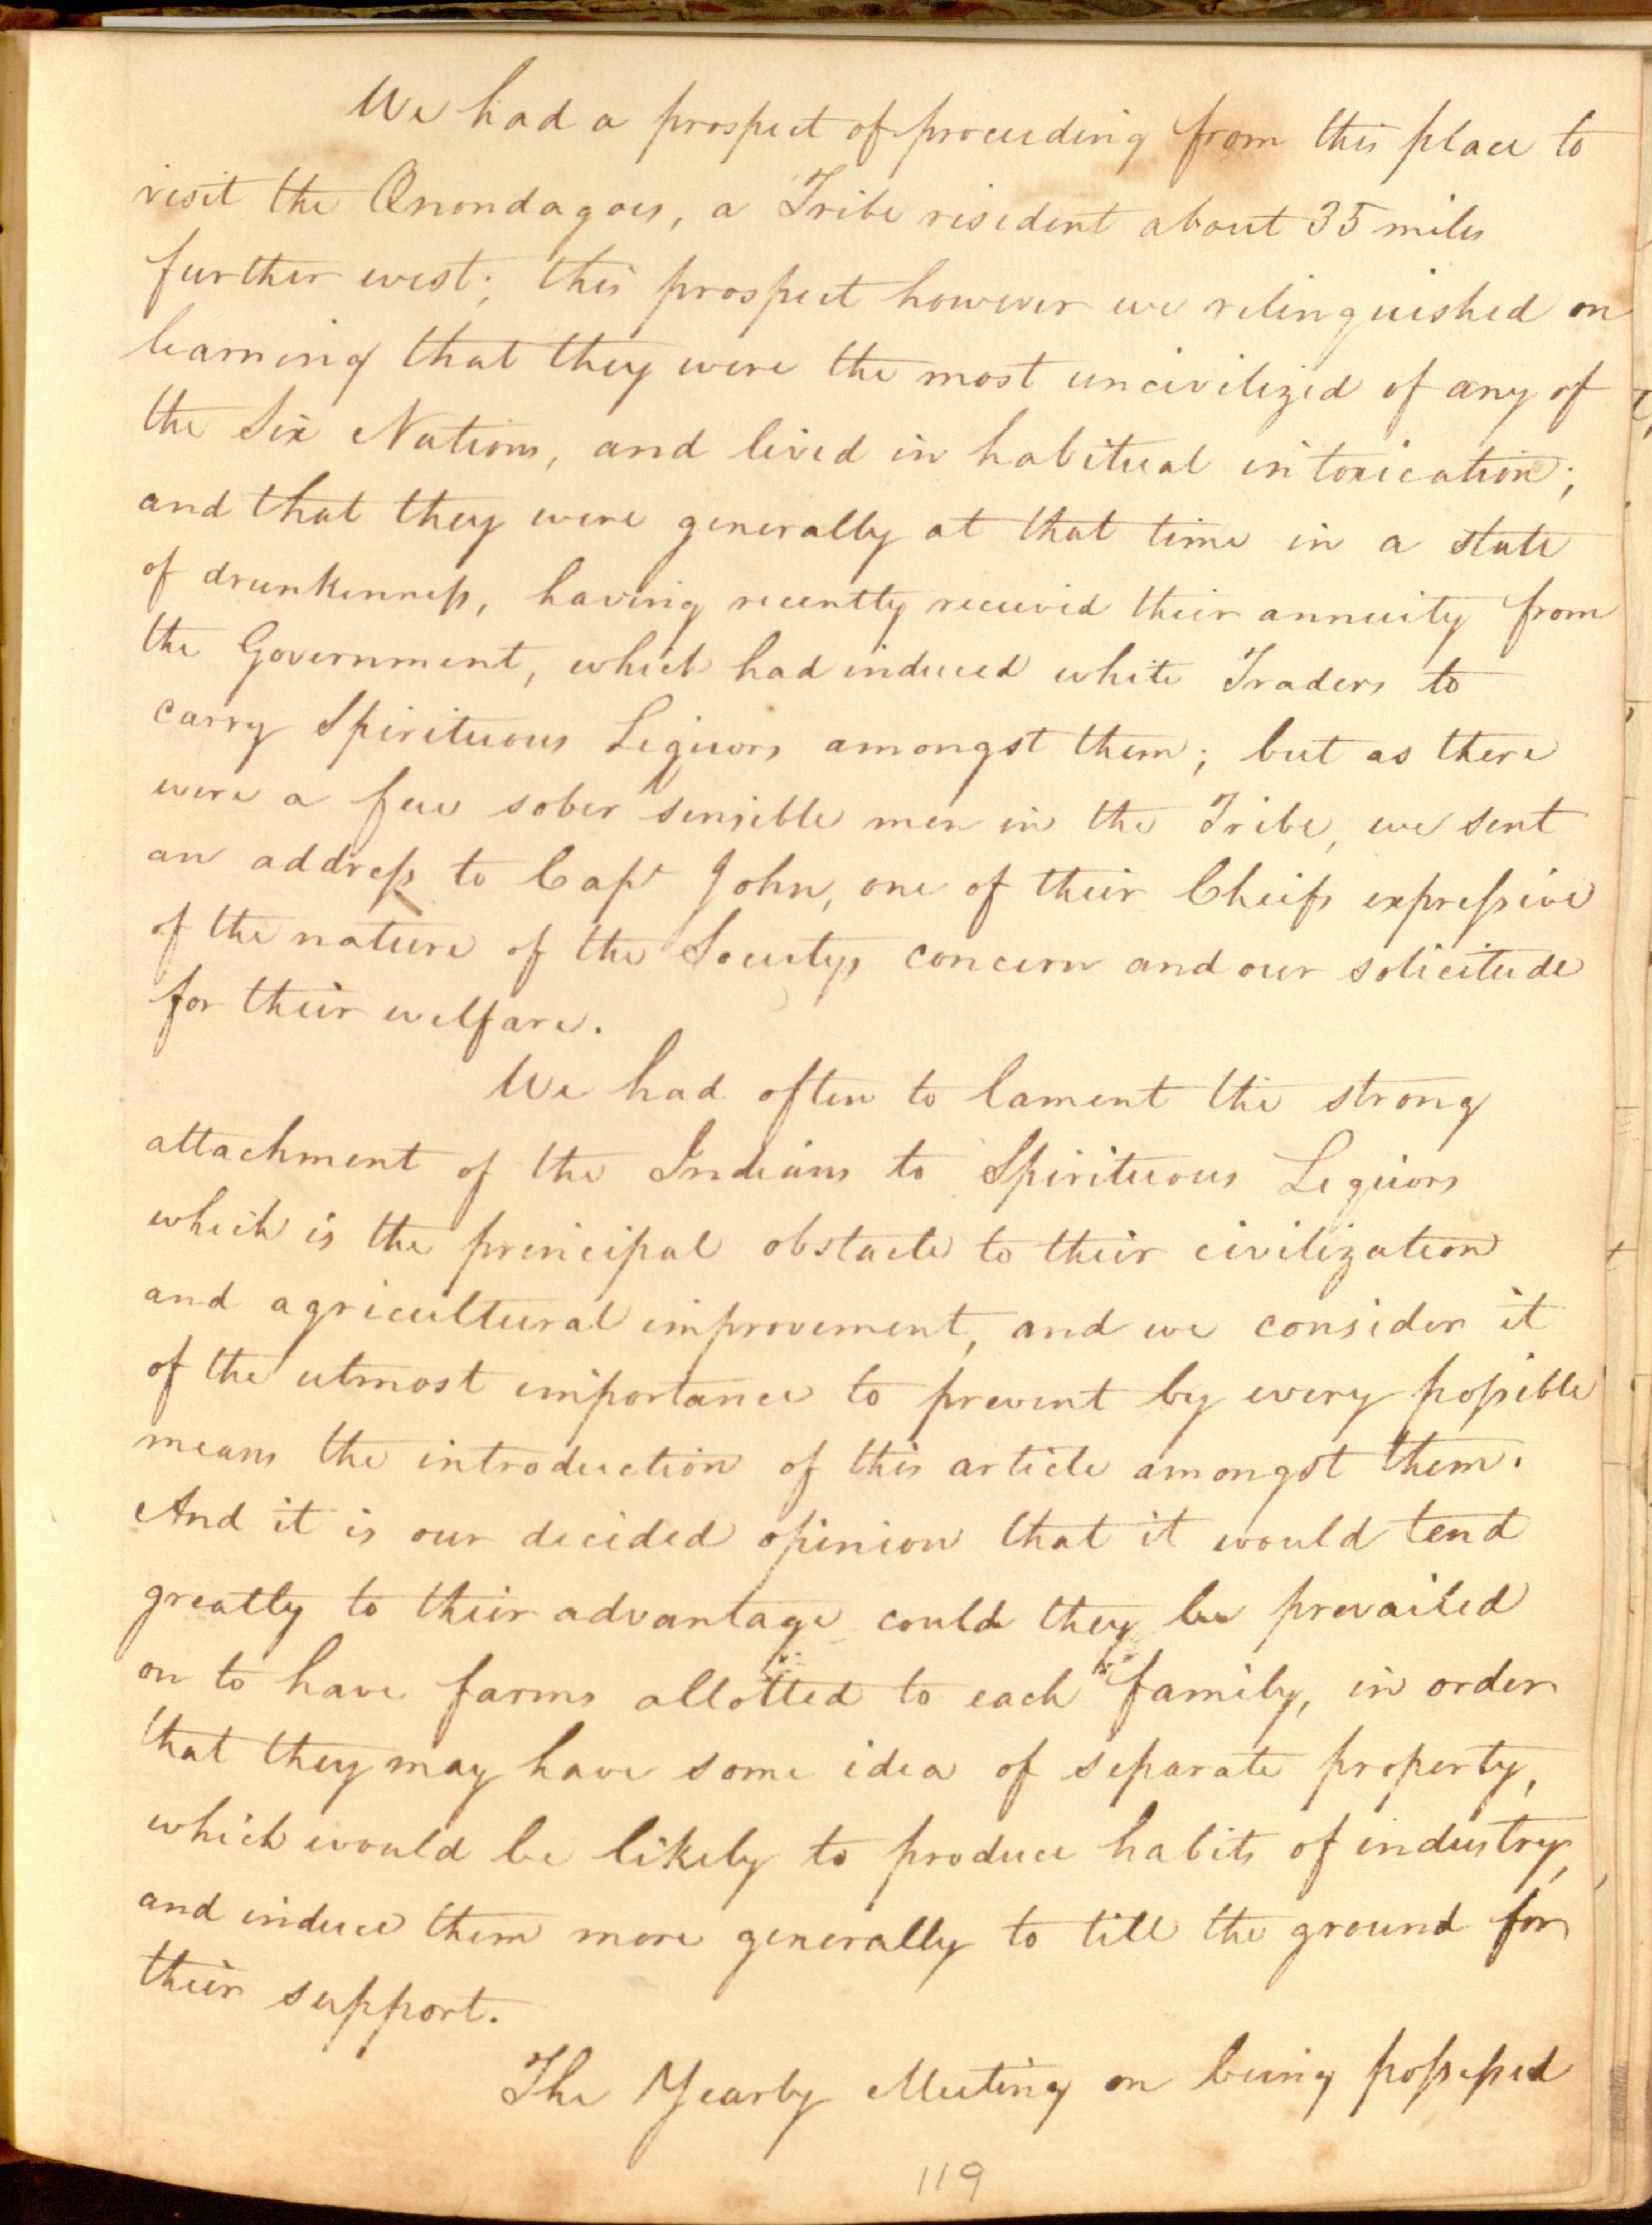 We had a prospect of proceeding from this place to
visit the Onondagoes, a Tribe resident about 35 miles
further west; this prospect however we relinquished on
learning that they were the most uncivilized of any of
the Six Nations, and lived in habitual intoxication;
and that they were generally at that time in a state
of drunkenness, having recently received their annuity from
the Government, which had induced white Traders to
carry Spirituous Liquors amongst them; but as there
were a few sober sensible men in the Tribe, we sent
an address to Capt John, one of their Cheifs expressive
of the nature of the Societys concern and our solicitude
for their welfare.
We had often to lament the strong
attachment of the Indians to Spirituous Liquors
which is the principal obstacle to their civilization
and agricultural improvement, and we consider it
of the utmost importance to prevent by every possible
means the introduction of this article amongst them.
And it is our decided opinion that it would tend
greatly to their advantage could they be prevailed
on to have farms allotted to each family, in order
that they may have some idea of separate property,
which would be likely to produce habits of industry,
and induce them more generally to till the ground for
their support.
The Yearly Meeting on being possessed
119